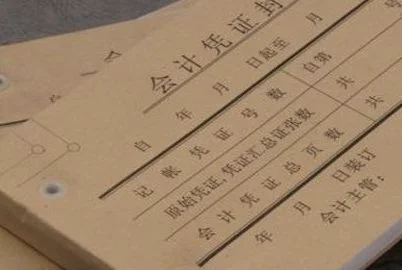 会计凭证封
自 年 月 日起至 月
记帐凭证号数 自第 号
原始凭证,凭证汇总证张数 共
会计凭证总页数 共
年 月 日装订
会计主管: